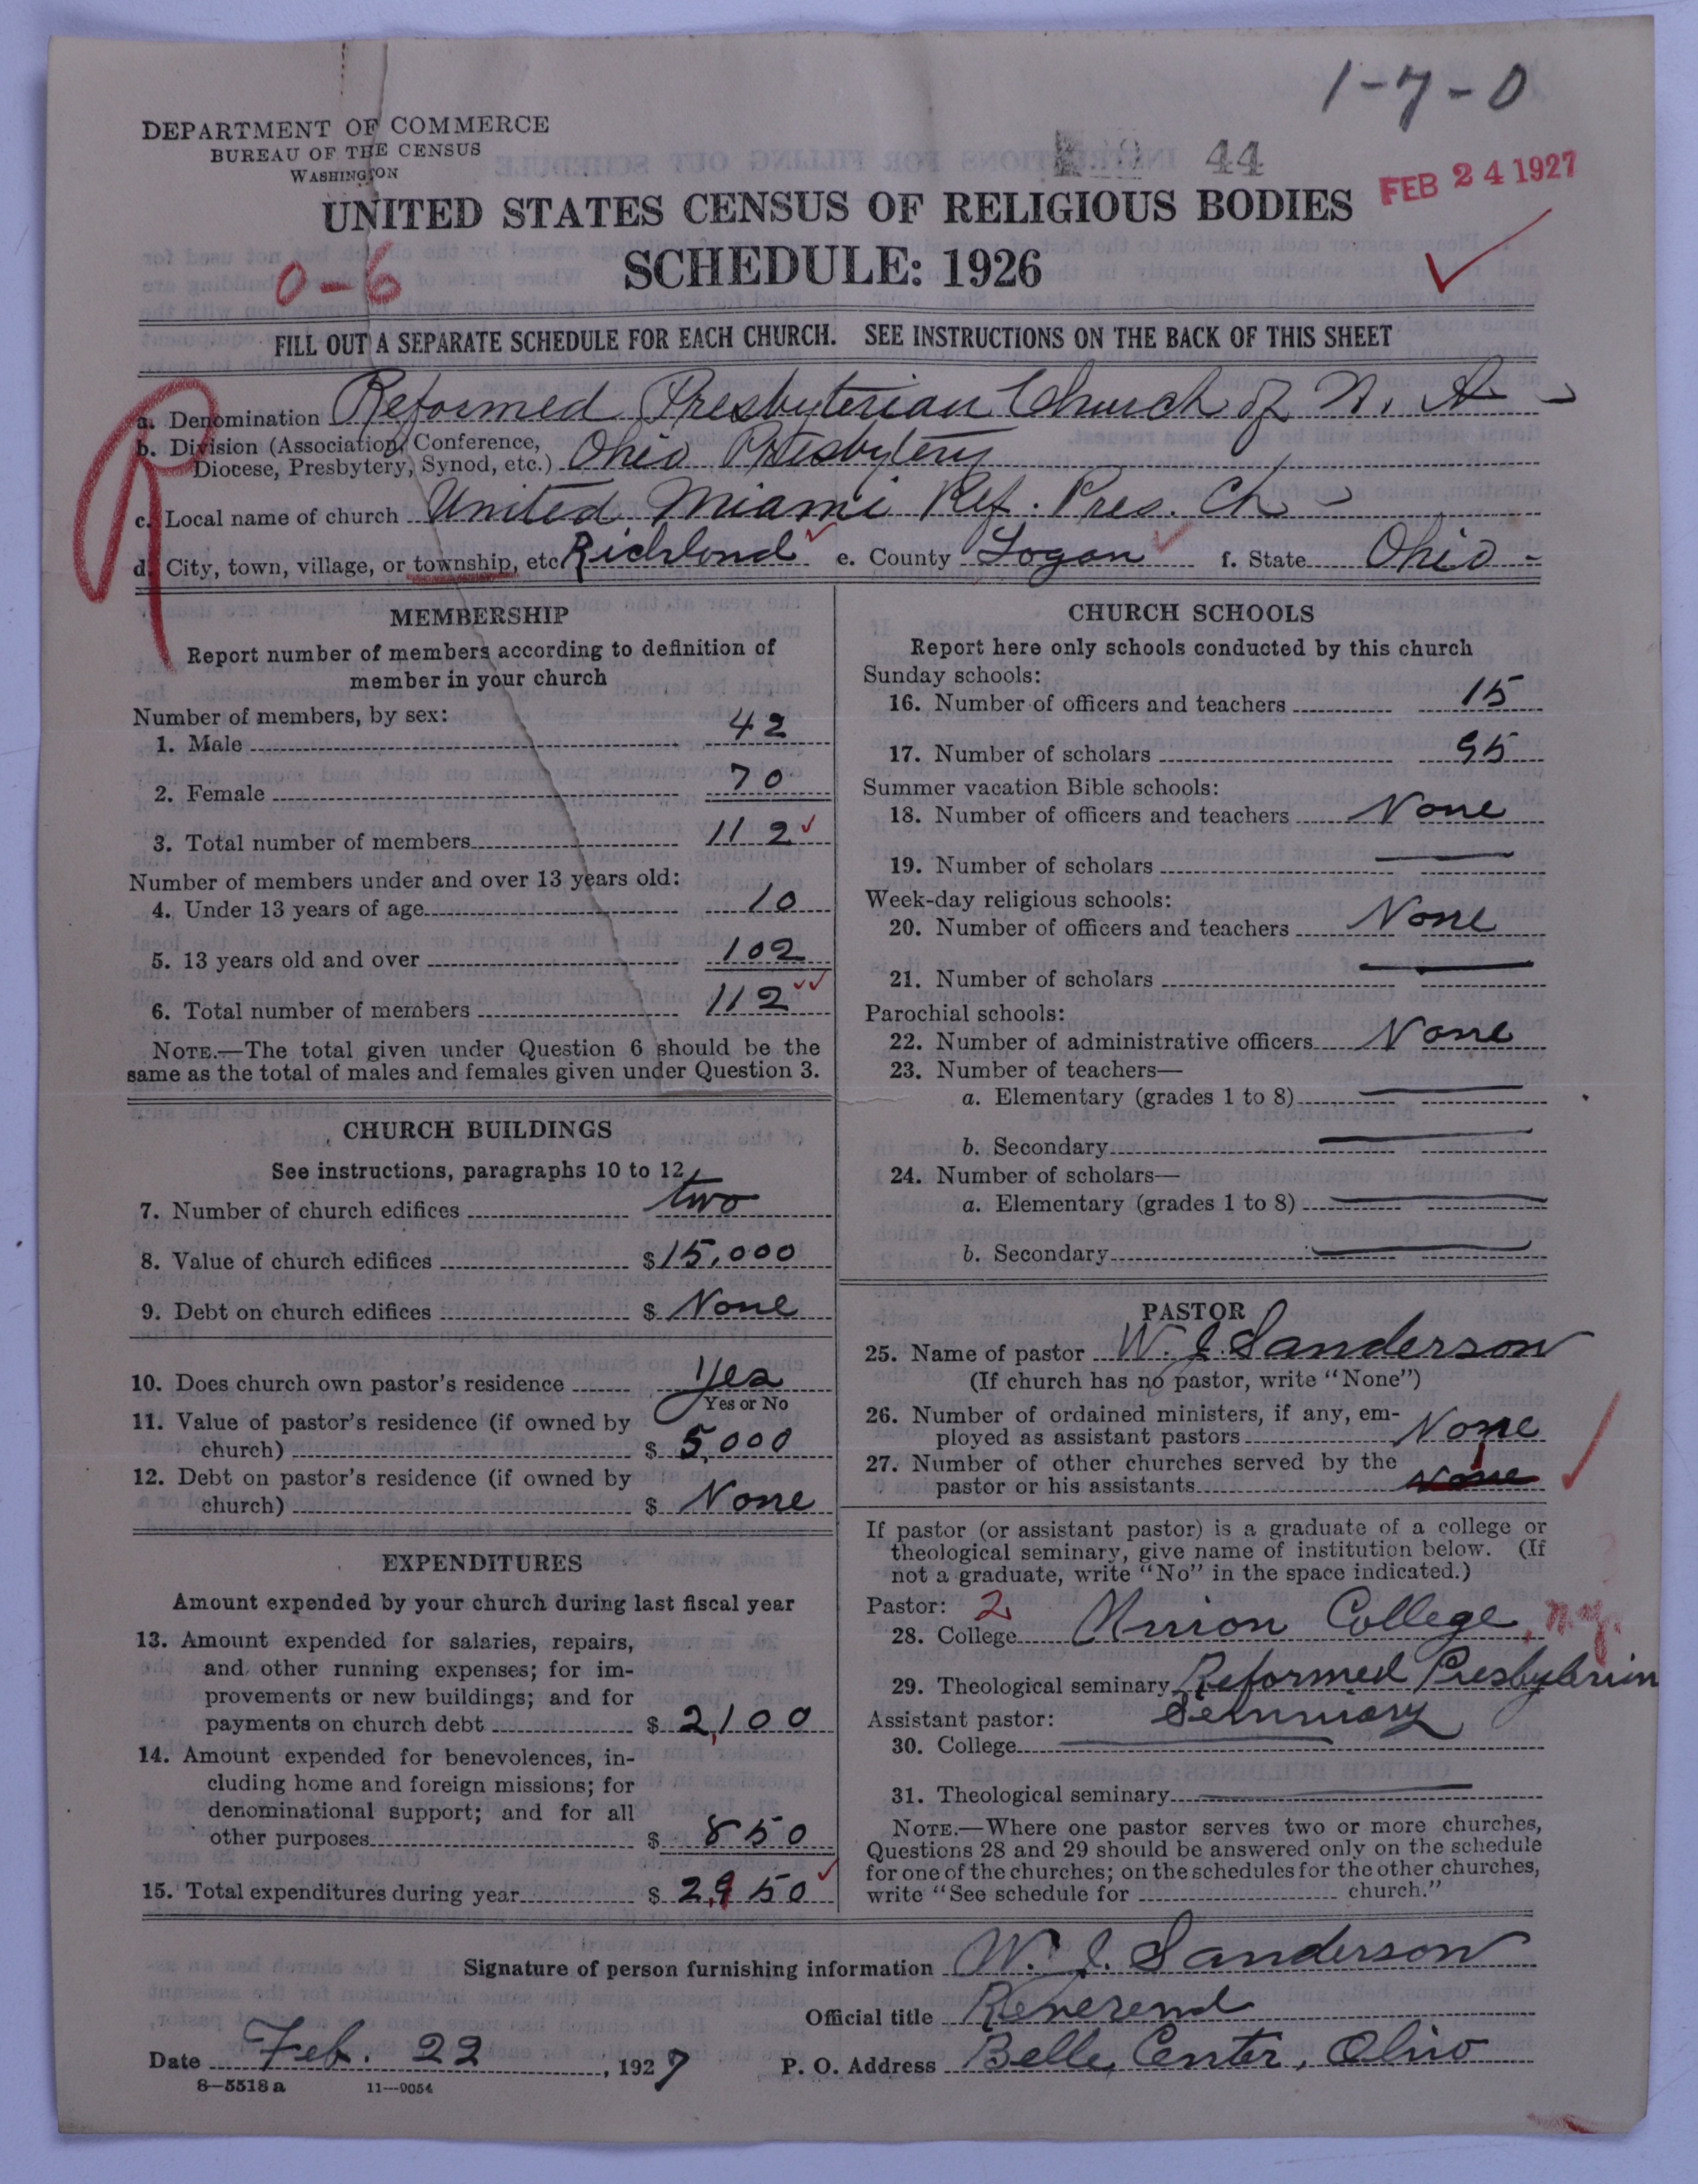 1-7-0
DEPARTMENT OF COMMERCE
BUREAU OF THE CENSUS
WASHINGTON
44
FEB 24 1927
UNITED STATES CENSUS OF RELIGIOUS BODIES
SCHEDULE: 1926
0-6
FILL OUT A SEPARATE SCHEDULE FOR EACH CHURCH. SEE INSTRUCTIONS ON THE BACK OF THIS SHEET
a. Denomination Reformed Presbyterian Church of N. A.
b. Division (Association, Conference,
Diocese, Presbytery, Synod, etc.) Ohio Presbytery
c. Local name of church United Miami Ref. Pres. Ch
d. City, town, village, or township, etc. Richlond e. County Logan f. State Ohio
MEMBERSHIP
Report number of members according to definition of
member in your church
Number of members, by sex:
1. Male 42
2. Female 70
3. Total number of members 112
Number of members under and over 13 years old:
4. Under 13 years of age 10
5. 13 years old and over 102
6. Total number of members 112
NOTE.—The total given under Question 6 should be the
same as the total of males and females given under Question 3.
CHURCH BUILDINGS
See instructions, paragraphs 10 to 12
7. Number of church edifices two
8. Value of church edifices $15,000
9. Debt on church edifices $ None
10. Does church own pastor's residence Yes
Yes or No
11. Value of pastor's residence (if owned by
church) $ 5,000
12. Debt on pastor's residence (if owned by
church) $ None
EXPENDITURES
Amount expended by your church during last fiscal year
13. Amount expended for salaries, repairs,
and other running expenses; for im-
provements or new buildings; and for
payments on church debt $ 2,100
14. Amount expended for benevolences, in-
cluding home and foreign missions; for
denominational support; and for all
other purposes $ 850
15. Total expenditures during year $ 2,950
CHURCH SCHOOLS
Report here only schools conducted by this church
Sunday schools:
16. Number of officers and teachers 15
17. Number of scholars 95
Summer vacation Bible schools:
18. Number of officers and teachers None
19. Number of scholars
Week-day religious schools:
20. Number of officers and teachers None
21. Number of scholars
Parochial schools:
22. Number of administrative officers None
23. Number of teachers—
a. Elementary (grades 1 to 8)
b. Secondary
24. Number of scholars—
a. Elementary (grades 1 to 8)
b. Secondary
PASTOR
25. Name of pastor W. J. Sanderson
(If church has no pastor, write "None")
26. Number of ordained ministers, if any, em-
ployed as assistant pastors None
27. Number of other churches served by the
pastor or his assistants None
If pastor (or assistant pastor) is a graduate of a college or
theological seminary, give name of institution below. (If
not a graduate, write "No" in the space indicated.)
Pastor: 2
28. College Union College, N.Y.
29. Theological seminary Reformed Presbyterian
Seminary
Assistant pastor:
30. College
31. Theological seminary
NOTE.—Where one pastor serves two or more churches,
Questions 28 and 29 should be answered only on the schedule
for one of the churches; on the schedules for the other churches,
write "See schedule for church."
Signature of person furnishing information W. J. Sanderson
Official title Reverend
Date Feb. 22, 1927 P. O. Address Belle Center, Ohio
8—5518 a 11—9054